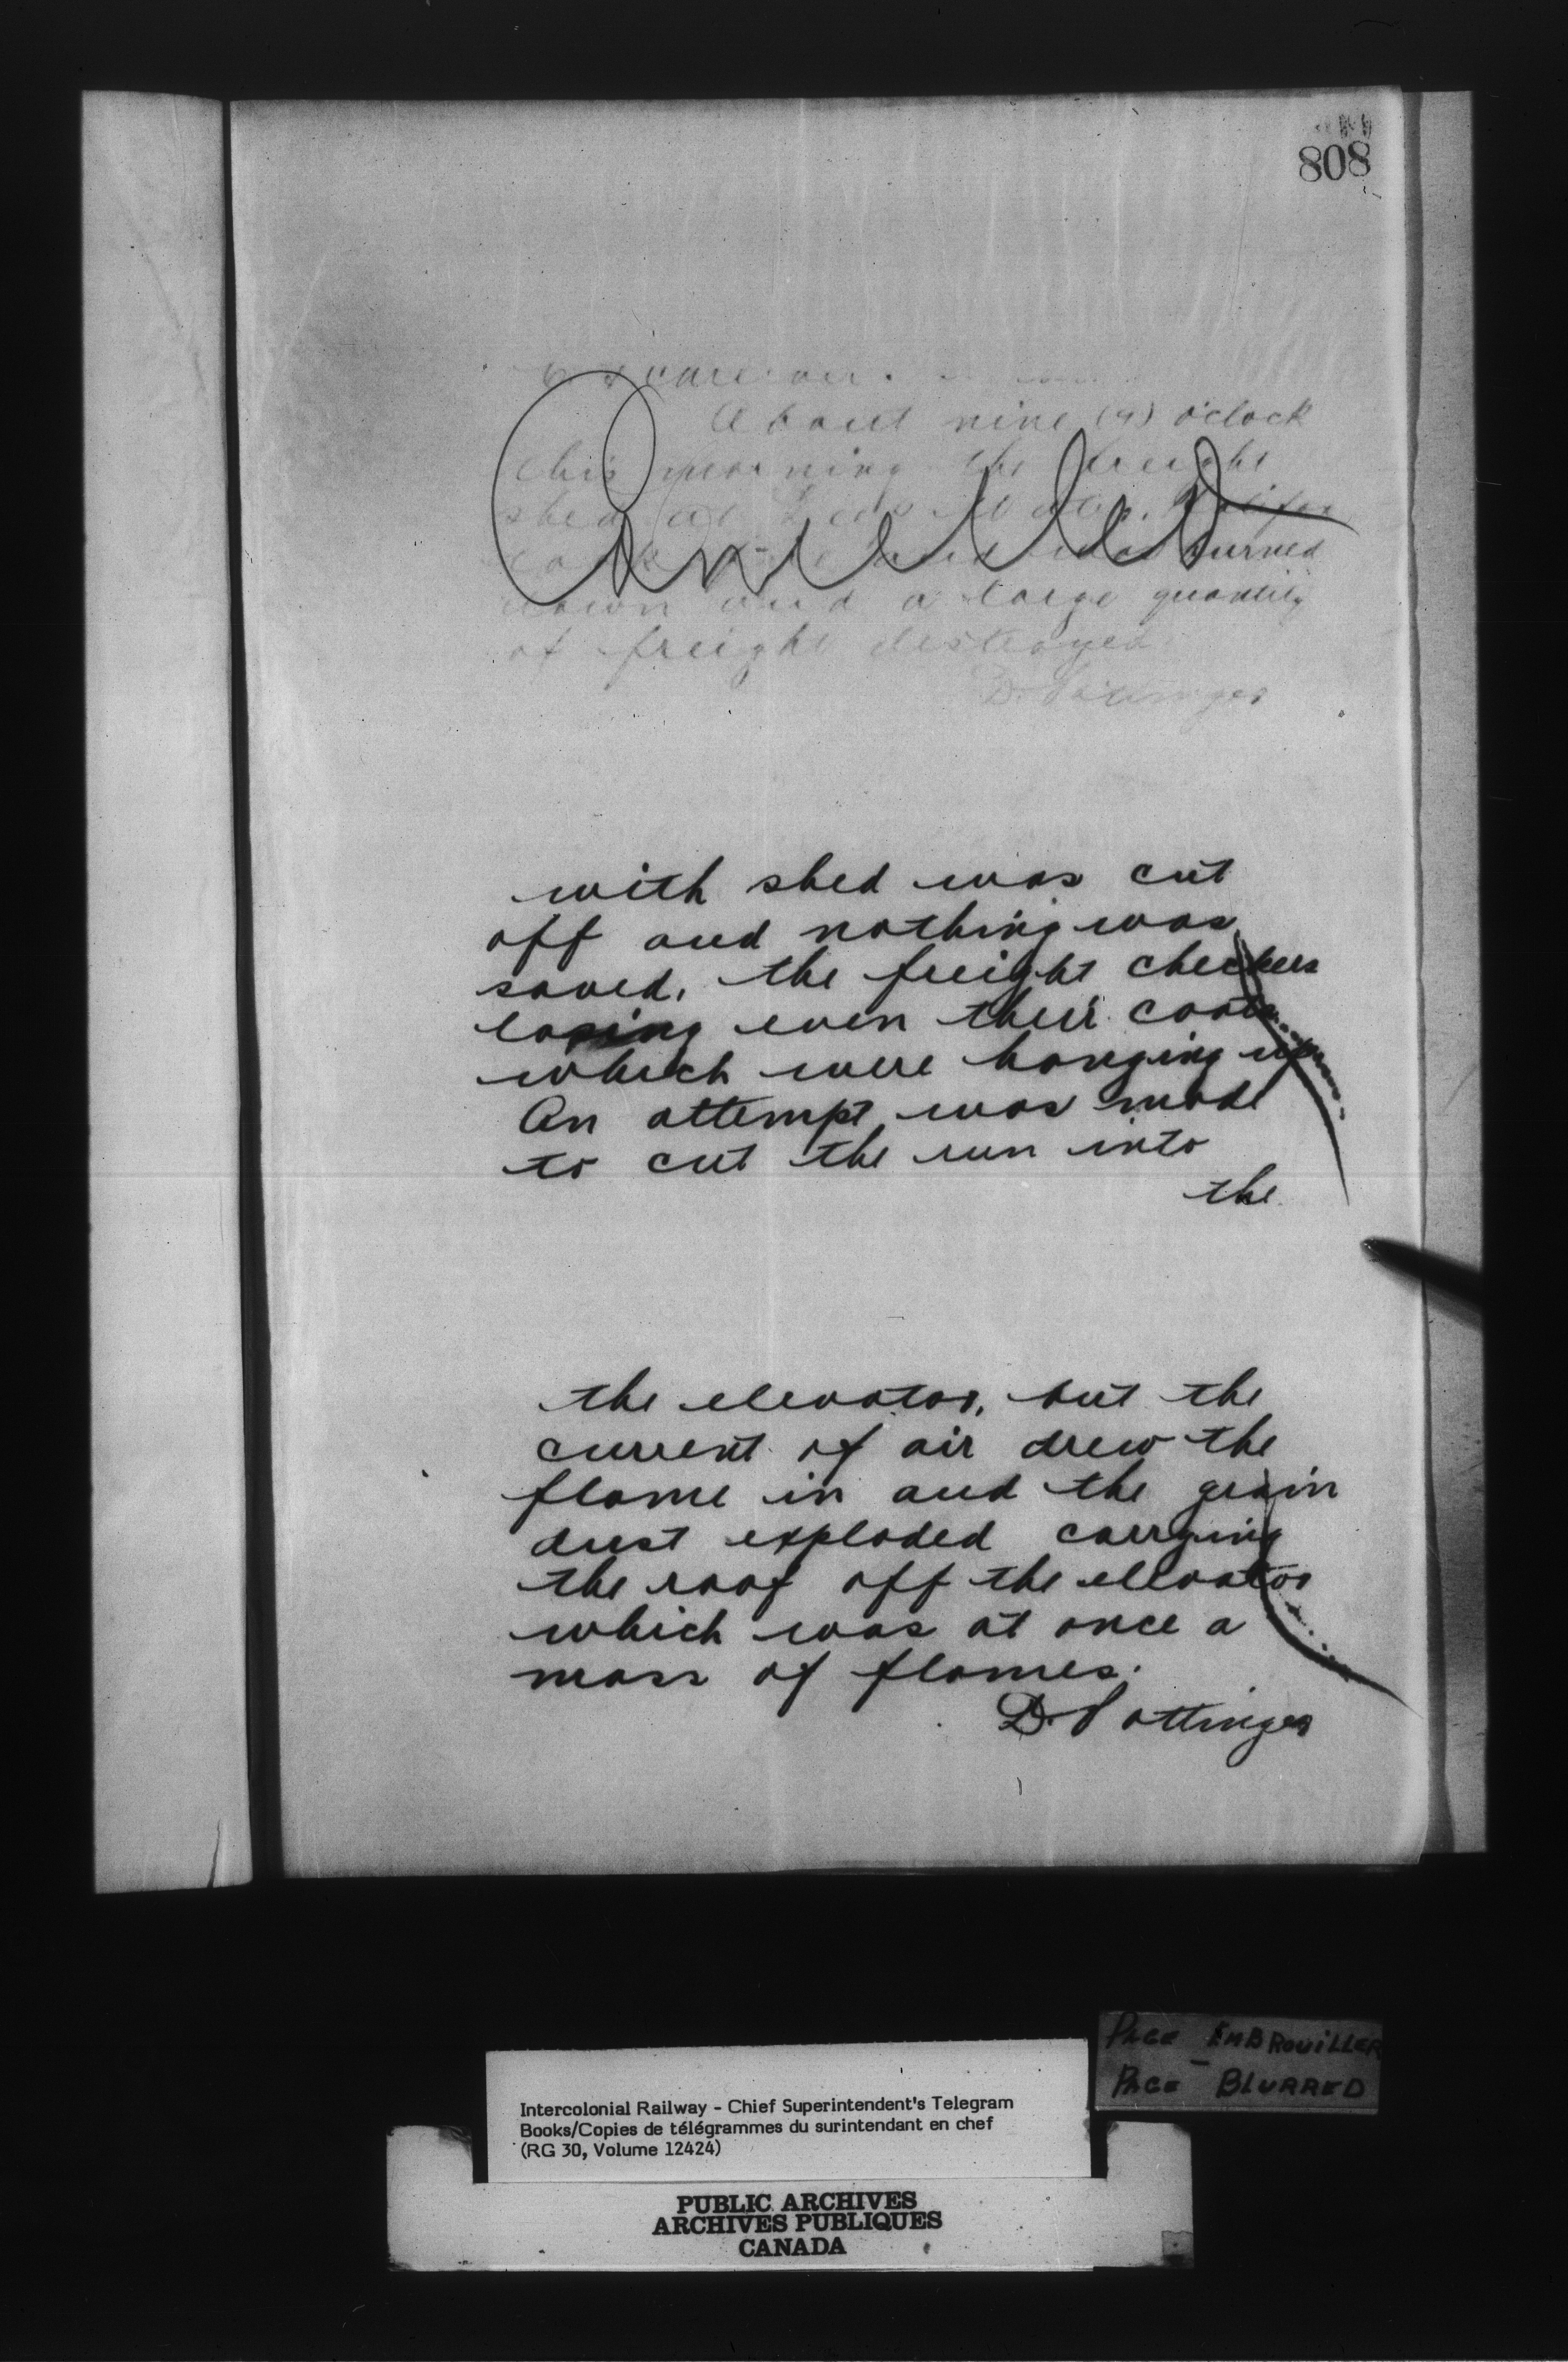 808
About nine (9) o'clock
this morning the freight
shed at Deep Water, Halifax
burned
down and a large quantity
of freight destroyed
D. Pottinger
Cancelled
with shed was cut
off and nothing was
saved, the freight checkers
losing even their coats
which were hanging up
An attempt was made
to cut the run into
the
the elevator, but the
current of air drew the
flame in and the grain
dust exploded carrying
the roof off the elevator
which was at once a
mass of flames.
D. Pottinger
PAGE EMBROUILLER
PAGE - BLURRED
Intercolonial Railway - Chief Superintendent's Telegram
Books/Copies de télégrammes du surintendant en chef
(RG 30, Volume 12424)
PUBLIC ARCHIVES
ARCHIVES PUBLIQUES
CANADA